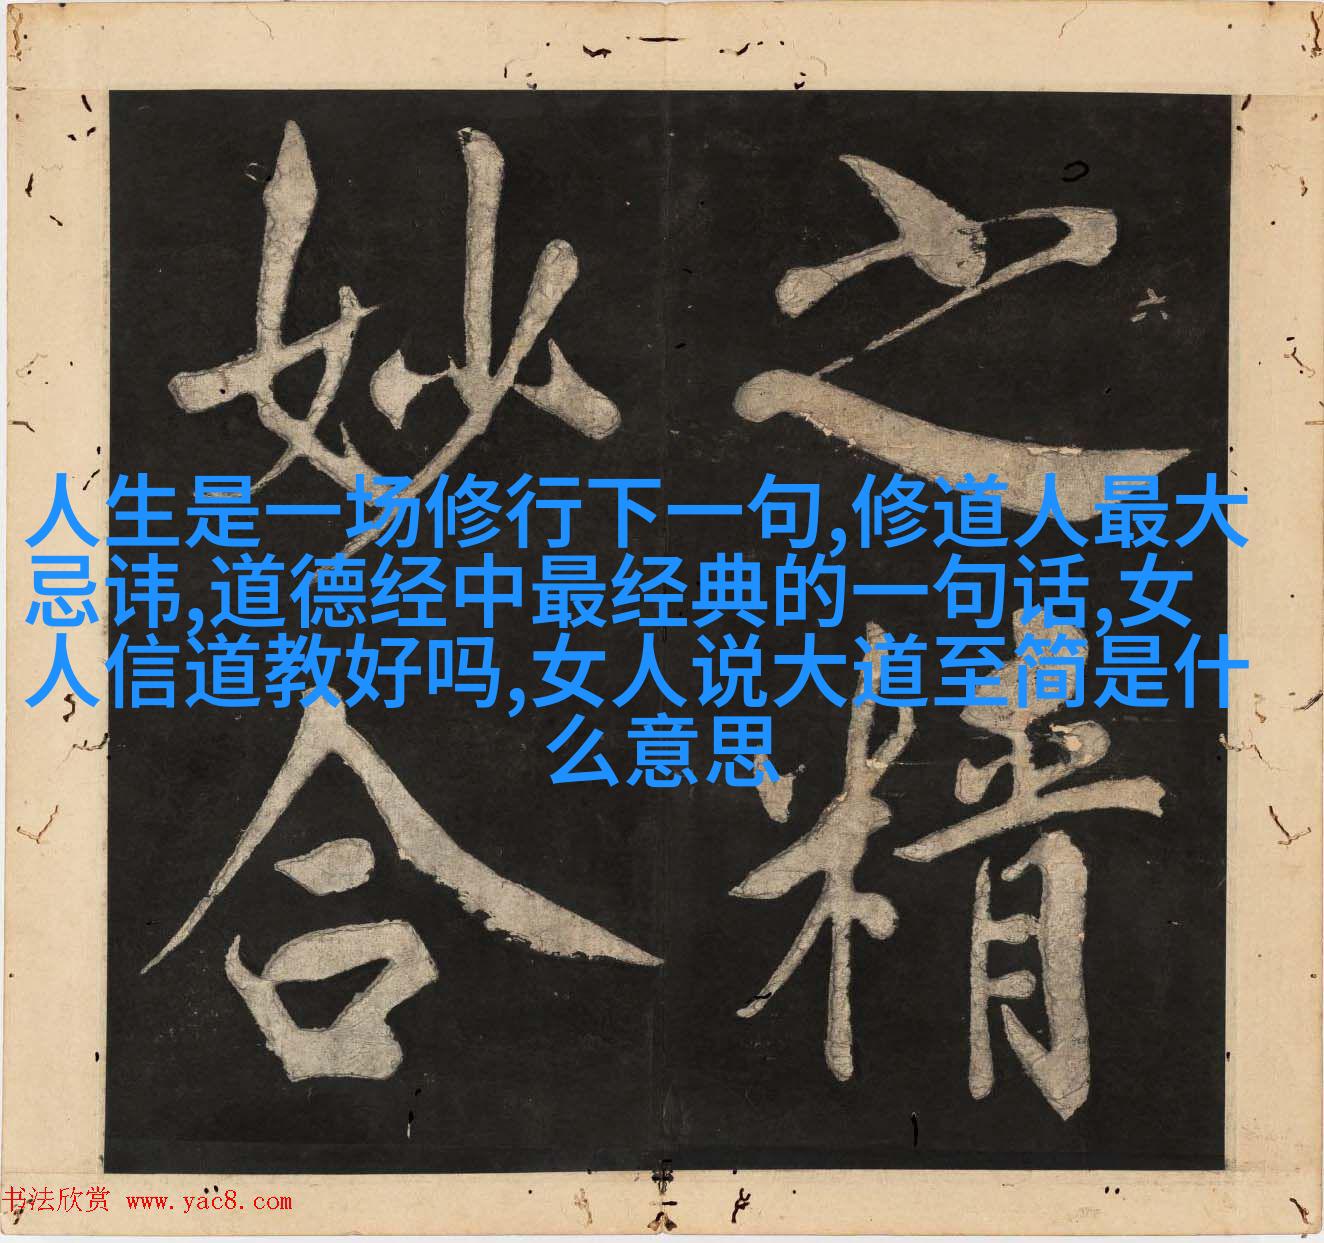 之精
妙合
六
人生是一场修行下一句,修道人最大
忌讳,道德经中最经典的一句话,女
人信道教好吗,女人说大道至简是什
么意思
书法欣赏 www.yac8.com